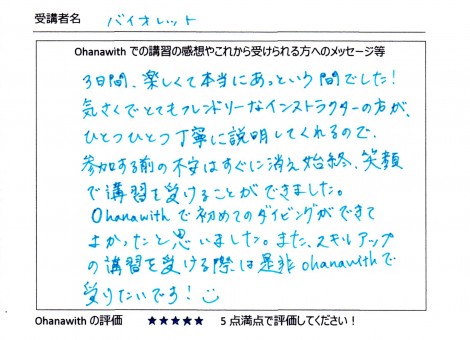 受講者名 バイオレット
Ohanawith での講習の感想やこれから受けられる方へのメッセージ等
3日間、楽しくて本当にあっという間でした!
気さくでとてもフレンドリーなインストラクターの方が、
ひとつひとつ丁寧に説明してくれるので、
参加する前の不安はすぐに消え始終、笑顔
で講習を受けることができました。
Ohanawithで初めてのダイビングができて
よかったと思いました。また、スキルアップ
の講習を受ける際は是非ohanawithで
受けたいです!
Ohanawith の評価 ★★★★★ 5 点満点で評価してください!